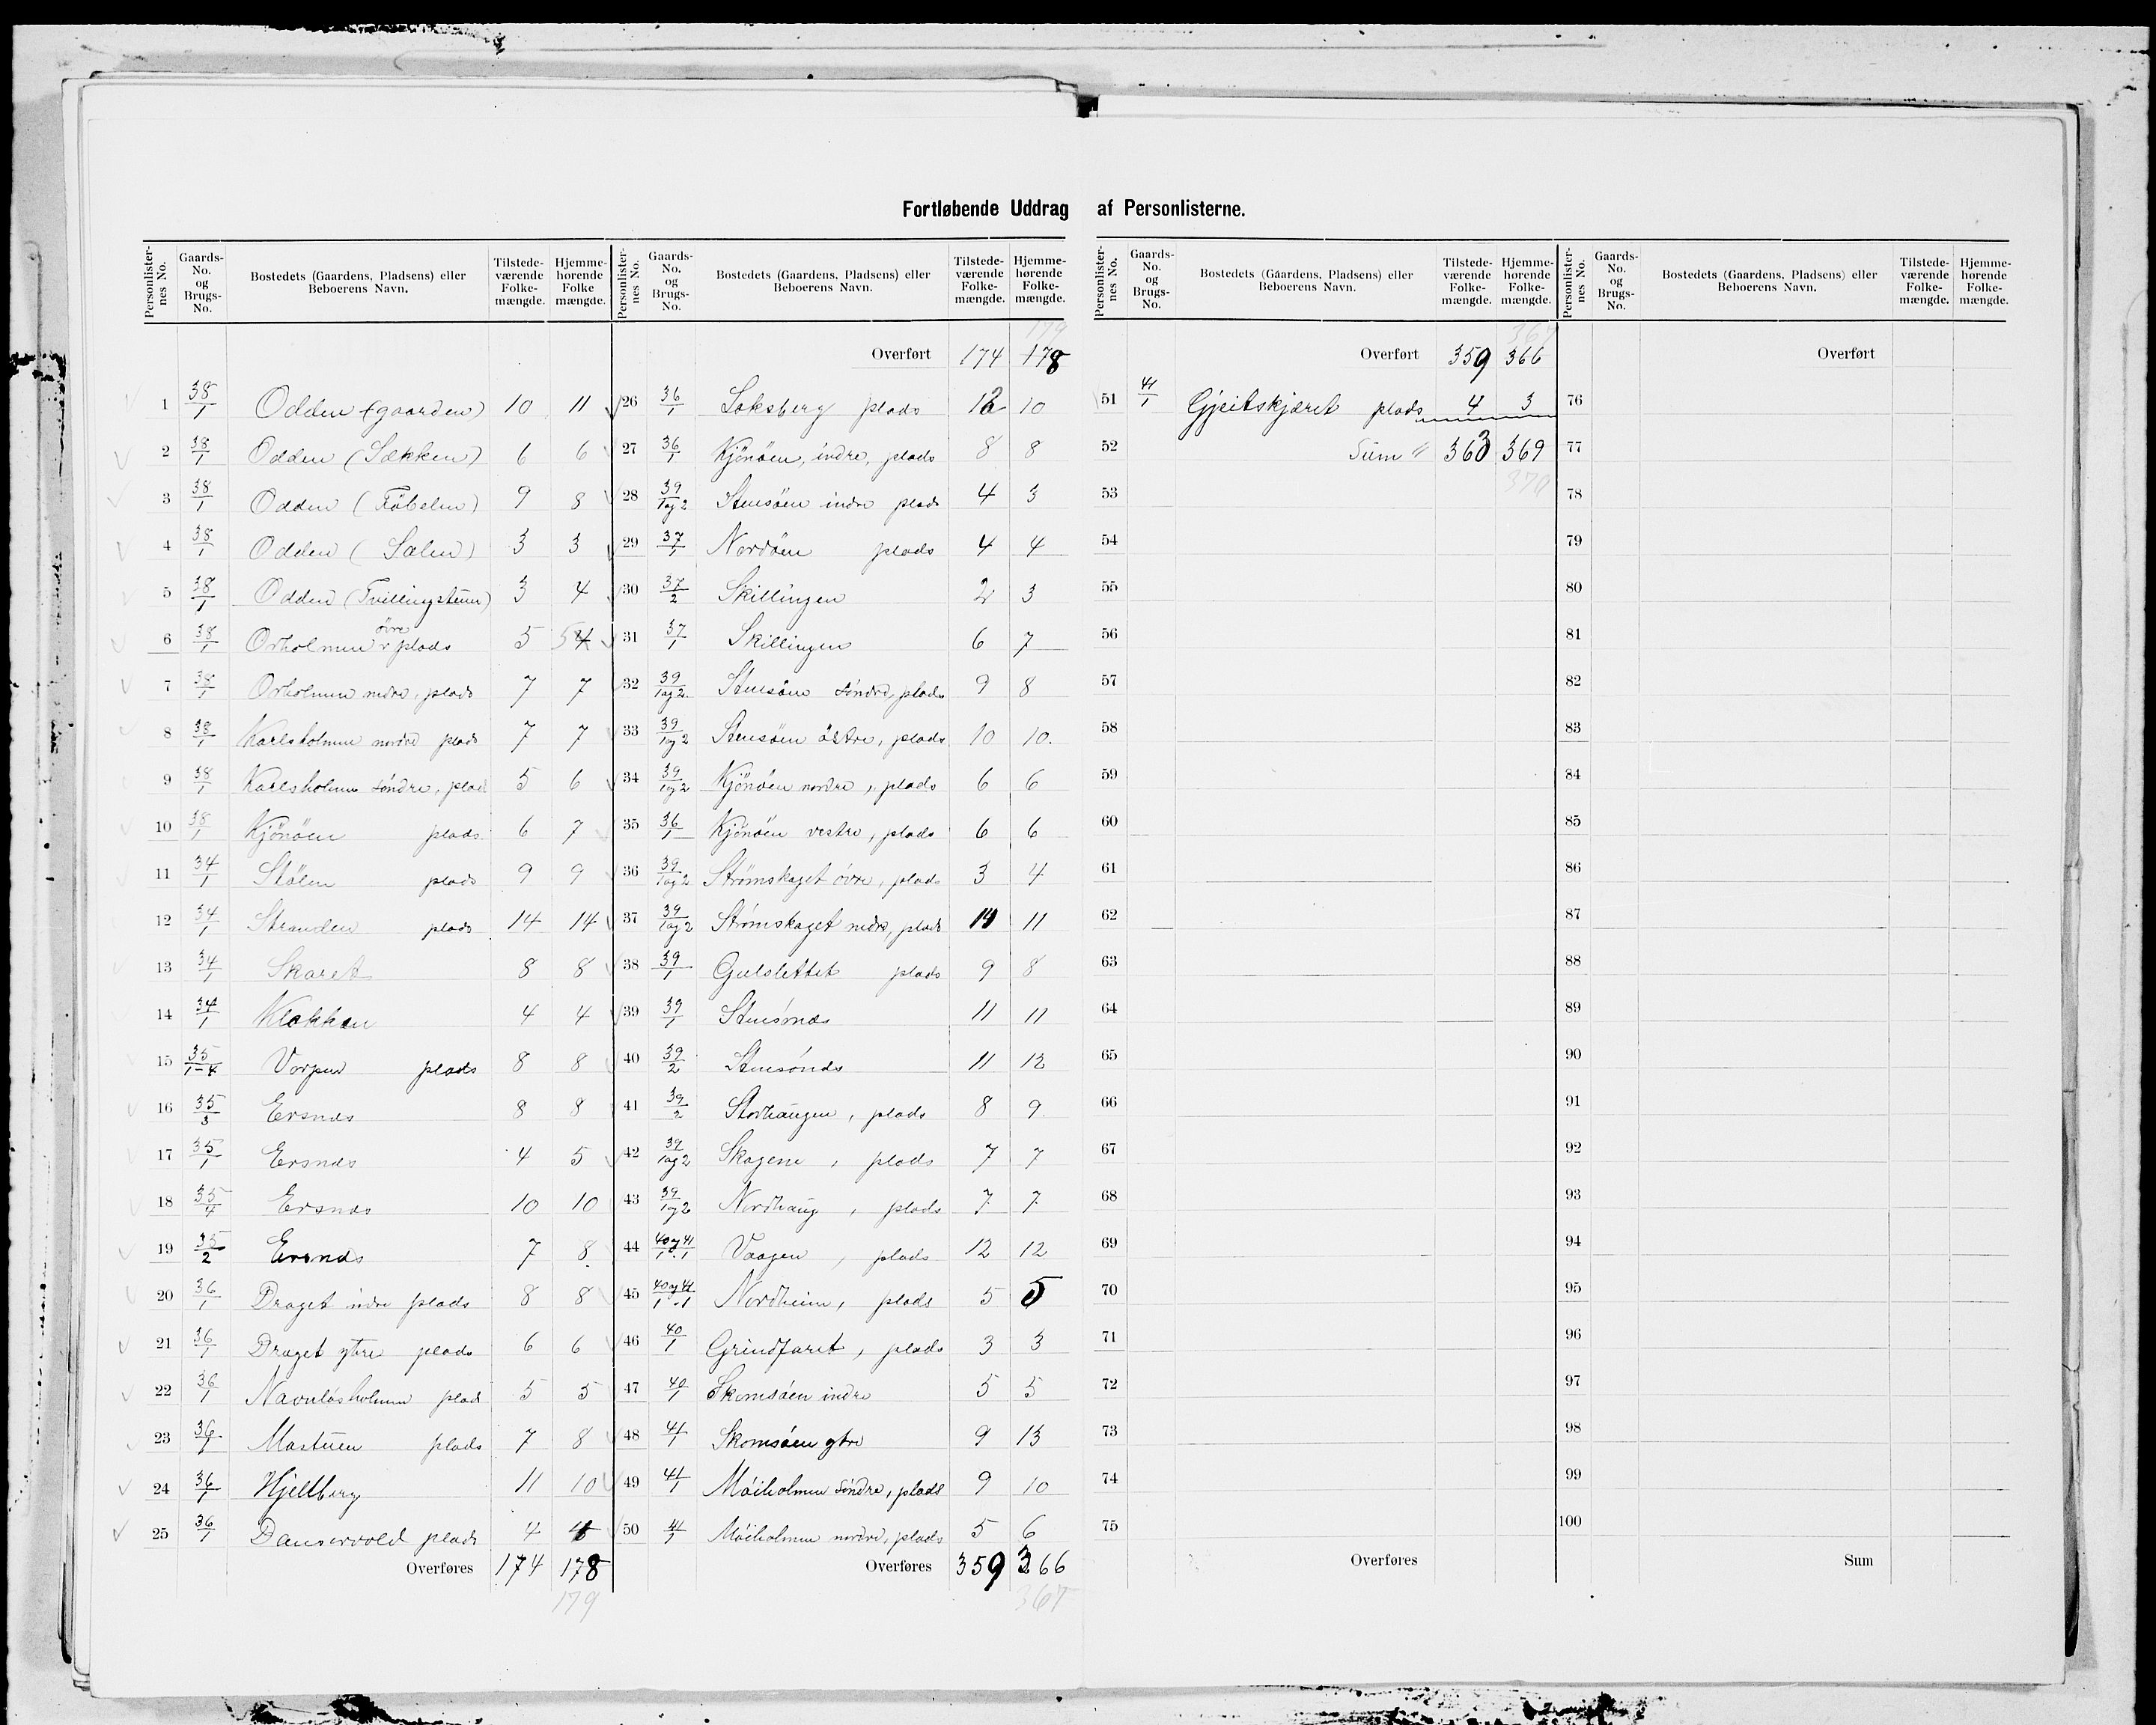 Fortløbende Uddrag af Personlisterne.
Personlisternes No. Gaards-No. og Brugs-No. Bostedets (Gaardens, Pladsens) eller Beboerens Navn. Tilstedeværende Folkemængde. Hjemmehørende Folkemængde.
1 38/1 Odden (gaarden) 10 11
2 38/1 Odden (Sækken) 6 6
3 38/1 Odden (Föbelen) 9 8
4 38/1 Odden (Salen) 3 3
5 38/1 Odden (Tvillingstuen) 3 4
6 38/1 Orholmen övre plads 5 5 4
7 38/1 Orholmen nedre, plads 7 7
8 38/1 Karlsholmen nordre plads 7 7
9 38/1 Karlsholmen söndre, plad 5 6
10 38/1 Kjönöen plads 6 7
11 34/1 Stölen plads 9 9
12 34/1 Stranden plads 14 14
13 34/1 Skaret 8 8
14 34/1 Klakken 4 4
15 35/1-4 Vorpen plads 8 8
16 35/3 Ersnæs 8 8
17 35/1 Ersnæs 4 5
18 35/4 Ersnæs 10 10
19 35/2 Ersnæs 7 8
20 36/1 Draget indre plads 8 8
21 36/1 Draget ytre plads 6 6
22 36/1 Navnlösholmen plad 5 5
23 36/1 Mastuen plads 7 8
24 36/1 Hjellberg 11 10
25 36/1 Danservold plads 4
Overføres 174 178
179
179
Overført 174 178
26 36/1 Laksberg plads 12 10
27 36/1 Kjönöen, indre, plads 8 8
28 39/1og2 Stensöen indre plads 4 3
29 37/1 Nordöen plads 4 4
30 37/2 Skillingen 2 3
31 37/1 Skillingen 6 7
32 39/1og2 Stensöen söndre, plads 9 8
33 39/1og2 Stensöen östre, plads 10 10.
34 39/1og2 Kjönöen nordre, plads 6 6
35 36/1 Kjönöen vestre, plads 6 6
36 39/1og2 Strömskaget övre, plads 3 4
37 39/1og2 Strömskaget nedre, plads 11
38 39/1 Gulslettet plads 9 8
39 39/1 Stensönæs 11 11
40 39/2 Stensönæs 11 12
41 39/2 Storhaugen, plads 8 9
42 39/1og2 Skagene, plads 7 7
43 39/1og2 Nordhaug, plads 7 7
44 40og41/1.1 Vaagen, plads 12 12
45 40og41/1.1 Nordheim, plads 5 5
46 40/1 Grindfaret, plads 3 3
47 40/1 Skomsöen indre 5 5
48 41/1 Skomsöen ytre 9 13
49 41/1 Möiholmen söndre, plads 9 10
50 41/1 Möiholmen nordre, plads 5 6
Overføres 359 366
367
Personlisternes No. Gaards-No. og Brugs-No. Bostedets (Gaardens, Pladsens) eller Beboerens Navn. Tilstedeværende Folkemængde. Hjemmehørende Folkemængde.
367
Overført 359 366
51 41/1 Gjeitskjæret plads 4 3
52 Sum " 363 369
53 370
54
55
56
57
58
59
60
61
62
63
64
65
66
67
68
69
70
71
72
73
74
75
Overføres
Overført
76
77
78
79
80
81
82
83
84
85
86
87
88
89
90
91
92
93
94
95
96
97
98
99
100
Sum